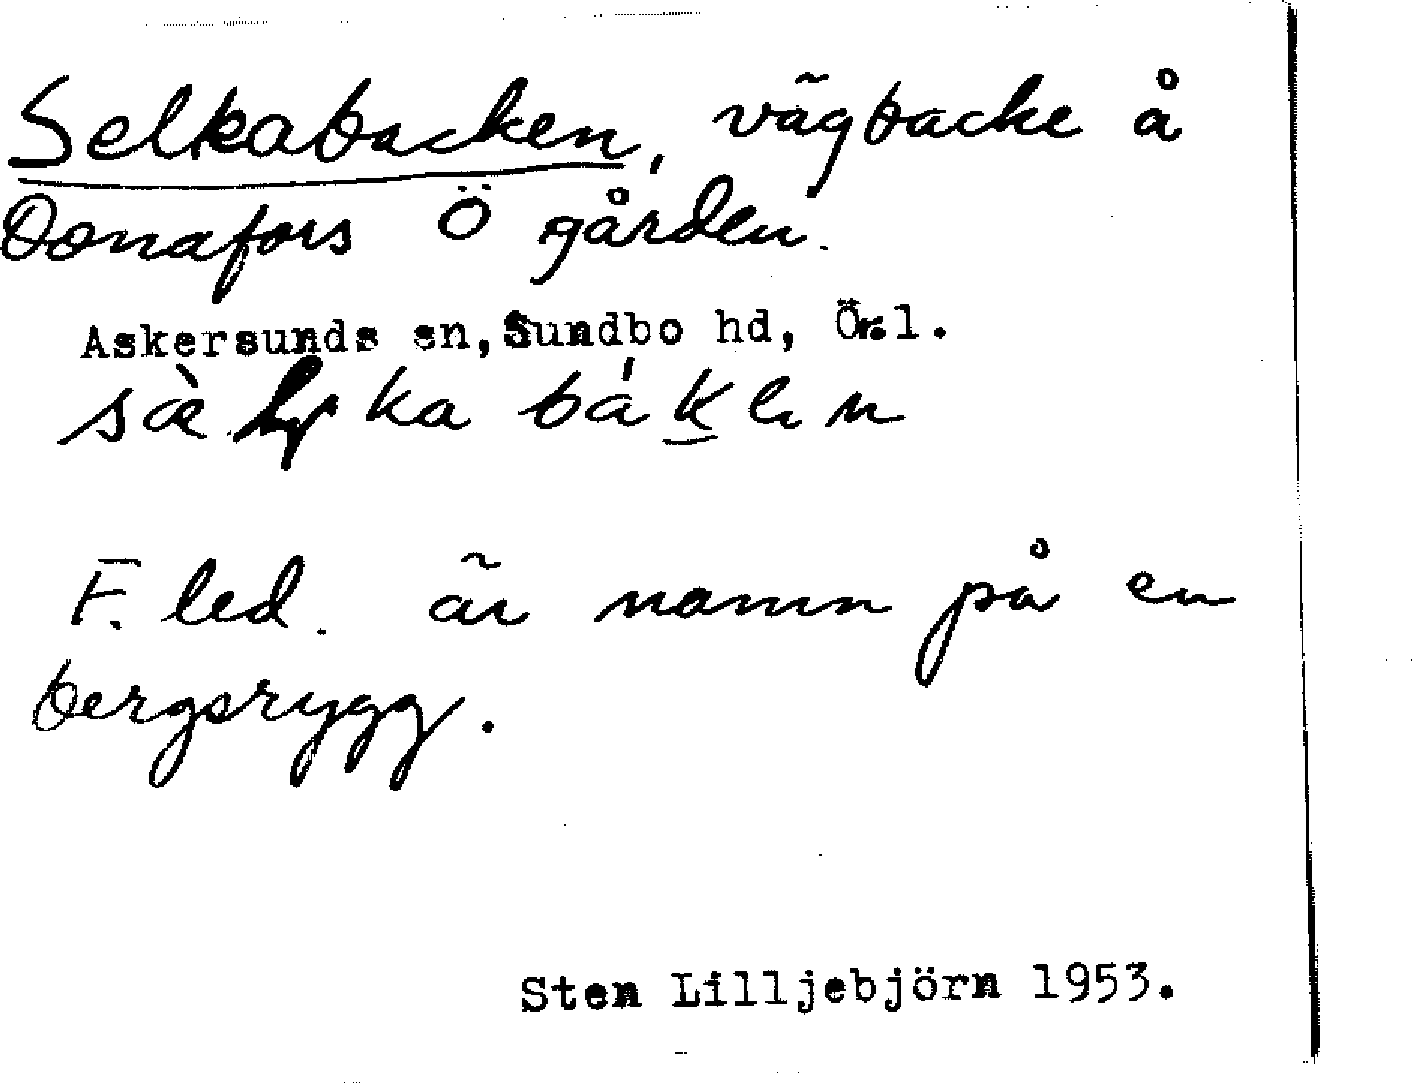 Selkabacken, vägbacke å
Donafors Ö gården.
Askersunds sn, Sundbo hd, Ör.l.
sæ̀lka bákken
F. led. är namn på en
bergsrygg.
Sten Lilljebjörn 1953.